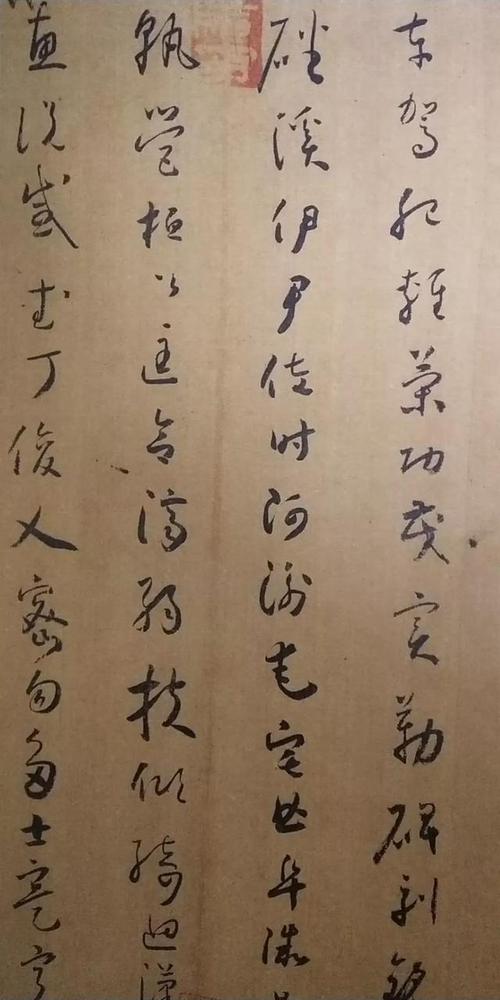 車駕肥輕策功茂實勒碑刻銘
磻溪伊尹佐時阿衡奄宅曲阜微
孰營桓公匡合濟弱扶傾綺迴漢
惠說感武丁俊乂密勿多士寔寧